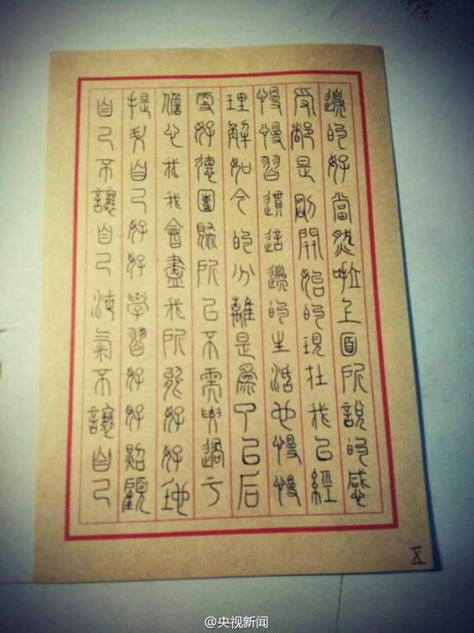 邊的好當然啦上面所說的感
受都是剛開始的現在我已經
慢慢習慣這邊的生活也慢慢
理解如今的分離是為了以后
更好德團聚所以不需要過于
擔心我我會盡我所能好好地
提自己好好學習好好照顧
自己不讓自己氣不讓自己
X
@央视新闻